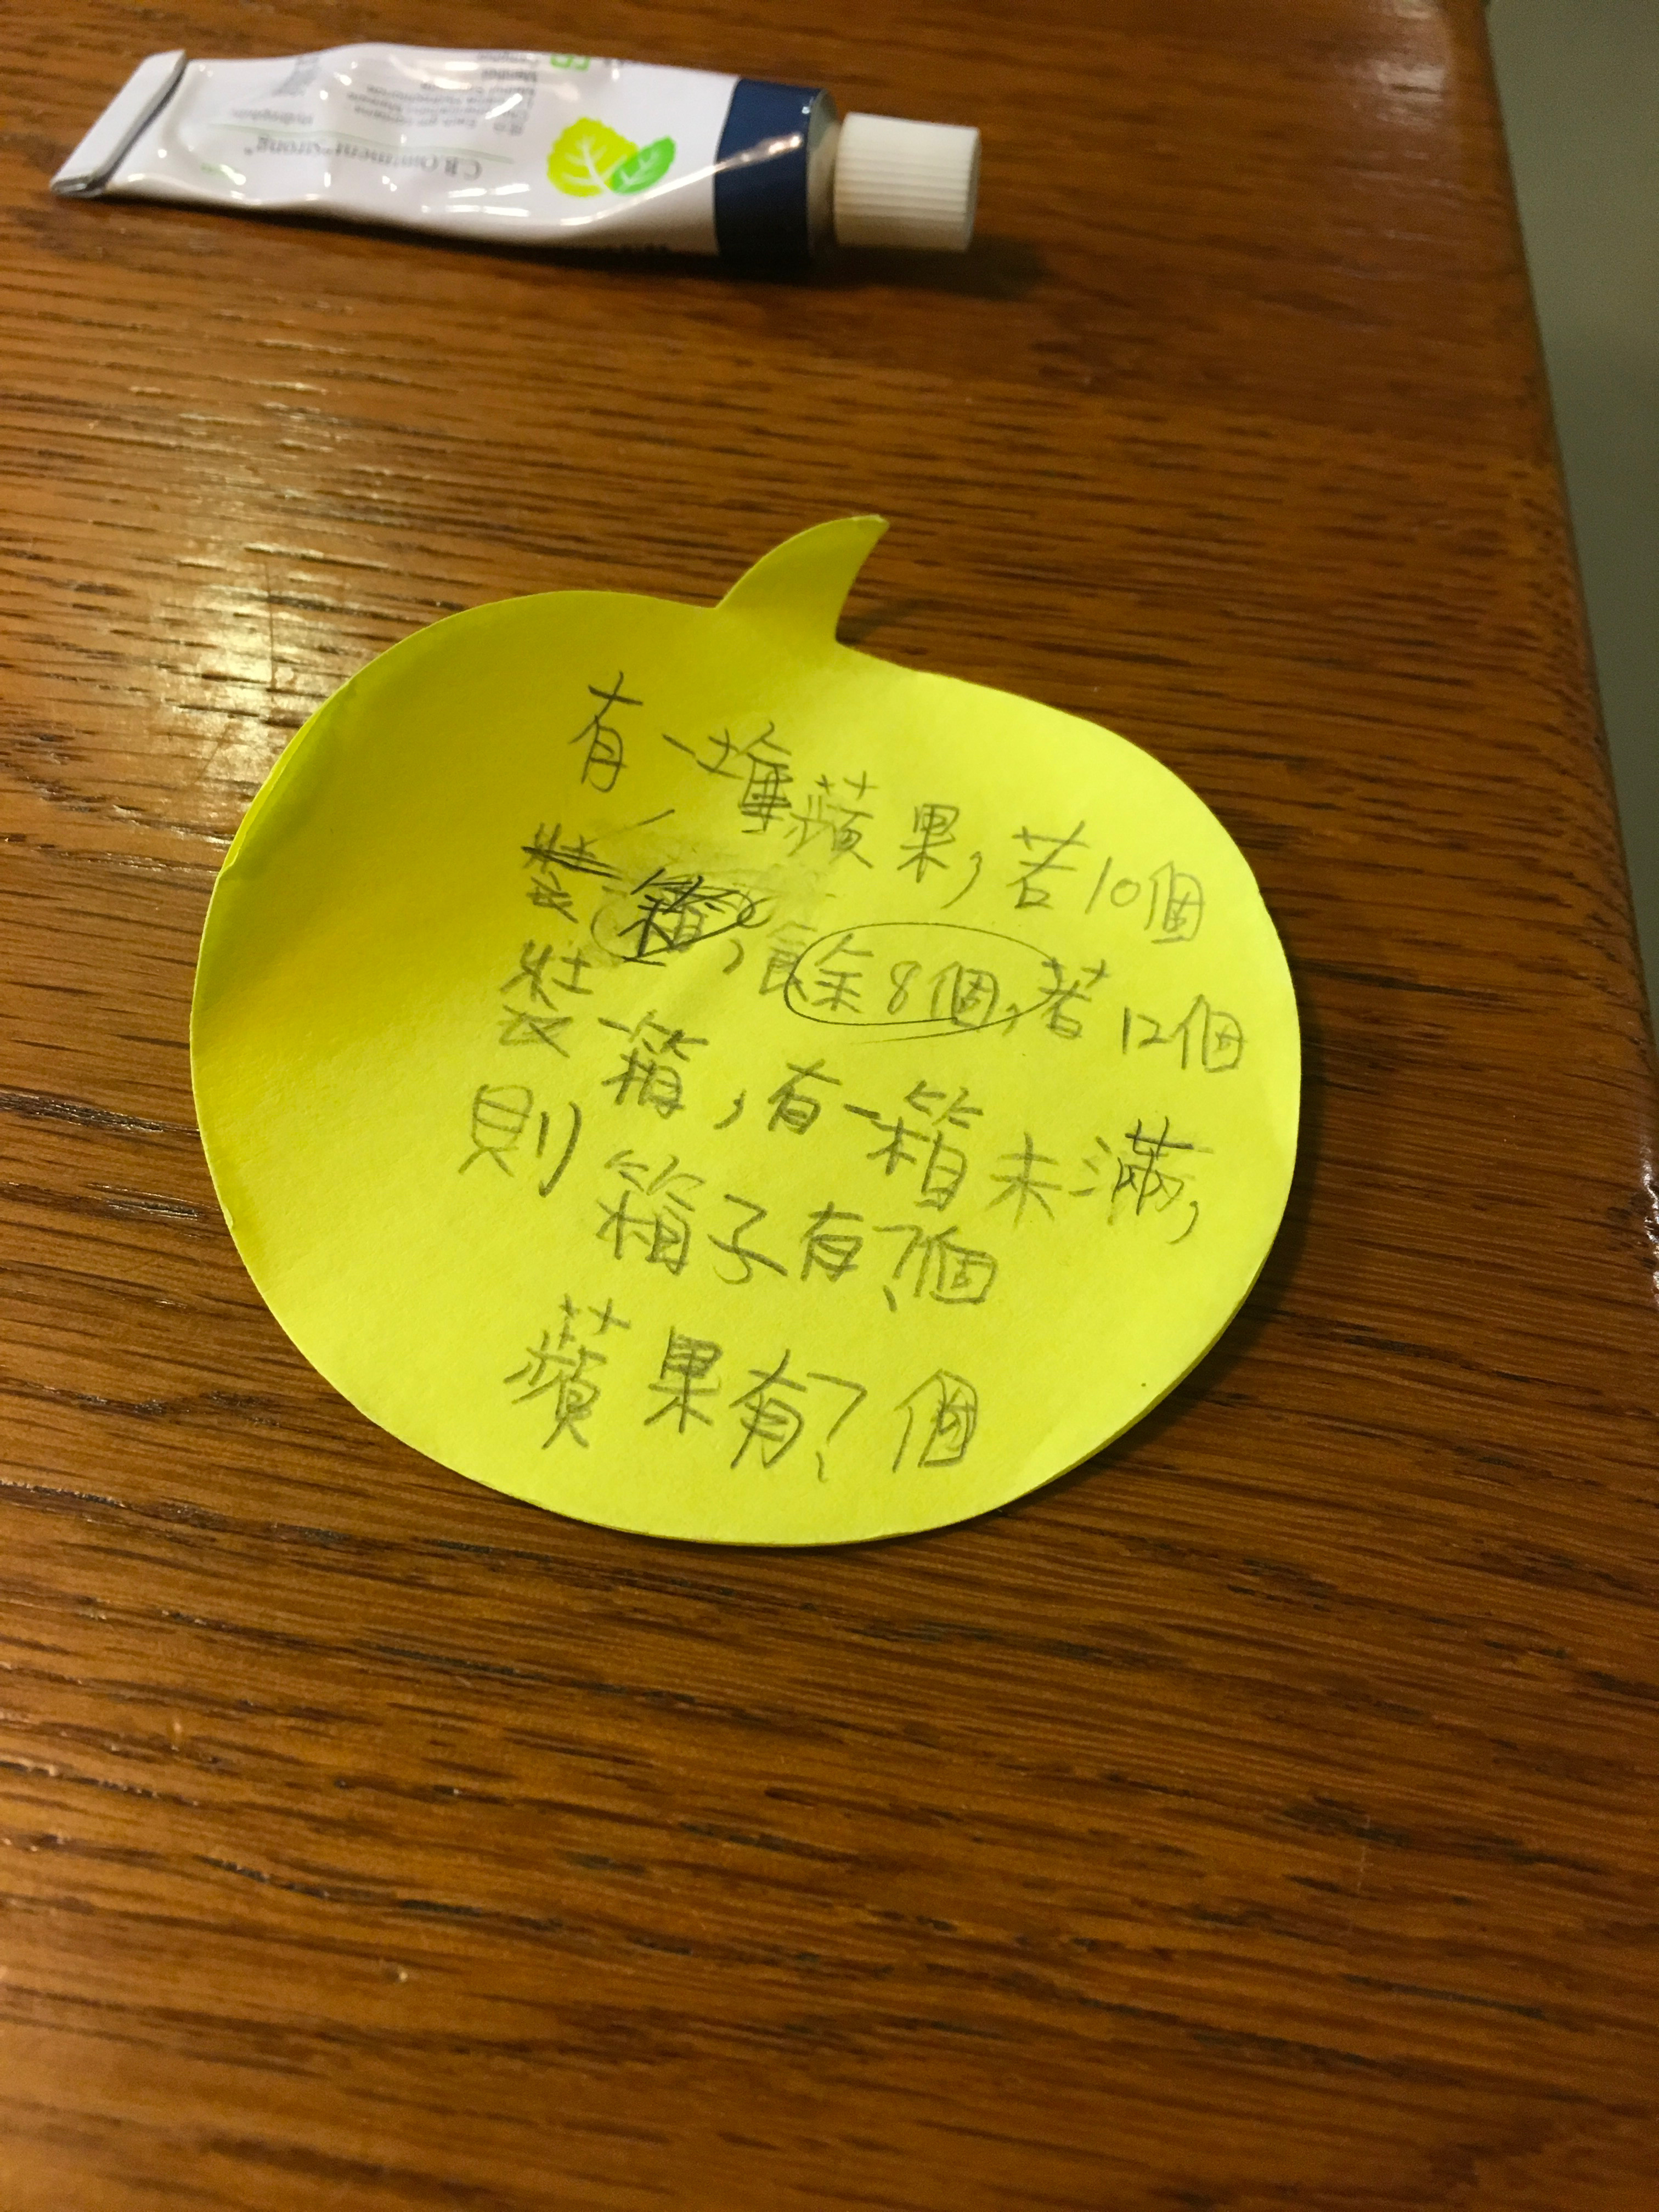 C.B. Ointment "Strong"
有一堆蘋果,若10個
裝一箱,餘8個,若12個
裝一箱,有一箱未滿,
則箱子有?個
蘋果有?個